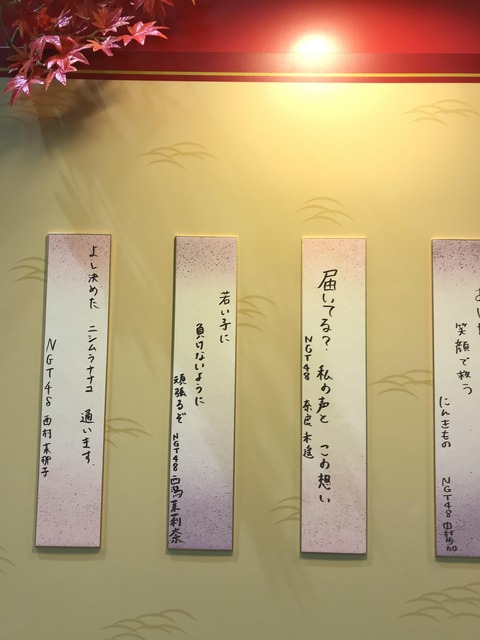 笑顔で救う
にんきもの
NGT48 中村歩加
届いてる? 私の声と この想い
NGT48 奈良未遥
若い子に
負けないように
頑張るぞ
NGT48 西潟茉莉奈
よし決めた ニシムラナナコ 通います
NGT48 西村菜那子